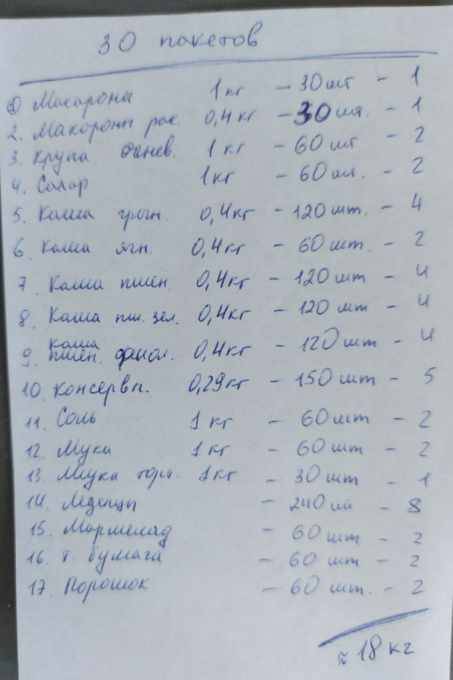 30 пакетов
1 Макарона 1 кг - 30 шт - 1
2. Макароны рак. 0,4 кг - 30 шт. - 1
3. Крупа 1 кг - 60 шт - 2
4. Сахар 1 кг - 60 шт. - 2
5. Каша гречн. 0,4 кг - 120 шт. - 4
6. Каша ячн. 0,4 кг - 60 шт. - 2
7. Каша пшен. 0,4 кг - 120 шт - 4
8. Каша пш. зел. 0,4 кг - 120 шт - 4
каша
9. пшен. 0,4 кг - 120 шт - 4
10. Консервы. 0,29 кг - 150 шт - 5
11. Соль 1 кг - 60 шт - 2
12. Мука 1 кг - 60 шт - 2
13. Мука 1 кг - 30 шт - 1
14. Леденцы - 240 шт - 8
15. Мармелад - 60 шт - 2
16. т. бумага - 60 шт - 2
17. Порошок - 60 шт. - 2
≈ 18 кг